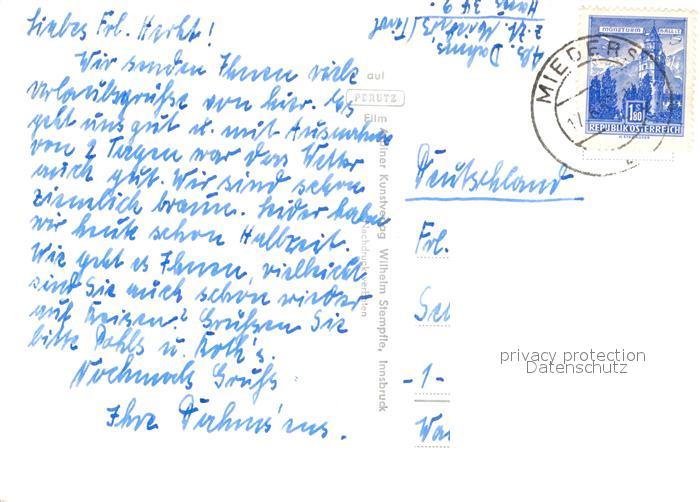 Liebes Frl. Herkt!
Wir senden Ihnen viele
Urlaubsgrüße von hier. Es
geht uns gut u. mit Ausnahme
von 2 Tagen war das Wetter
auch gut. Wir sind schon
ziemlich braun. Leider haben
wir heute schon Halbzeit.
Wie geht es Ihnen, vielleicht
sind Sie auch schon wieder
auf Reisen? Grüßen Sie
bitte Pohls u. Roth's.
Nochmals Gruß
Ihre Dahms'ens.
Abs. Dahms
z. Zt. Mieders/Tirol
Haus 34 g
auf
PERUTZ
Film
Kunstverlag Wilhelm Stempfle, Innsbruck
Nachdruck verboten
MÜNZTURM HALL i. T.
S 1.80
REPUBLIK ÖSTERREICH
MIEDERS
Deutschland
Frl.
-1-
privacy protection
Datenschutz